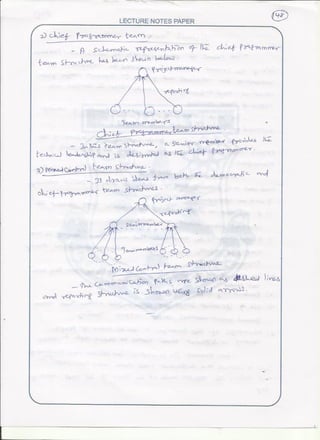 LECTURE NOTES PAPER
48
2) chief Programmer team
- A schematic representation of the chief programmer
team structure has been shown below:
project manager
reporting
Team members
chief Programmer team structure
- In this team structure, a senior member provides the
technical leadership and is designated as the chief programmer.
3) Mixed control team structure
- It draws ideas from both the democratic and
chief-Programmer team structures.
project manager
reporting
Senior member
Team members
Mixed control team structure
- The communication paths are shown as dashed lines
and reporting structure is shown using solid arrows.